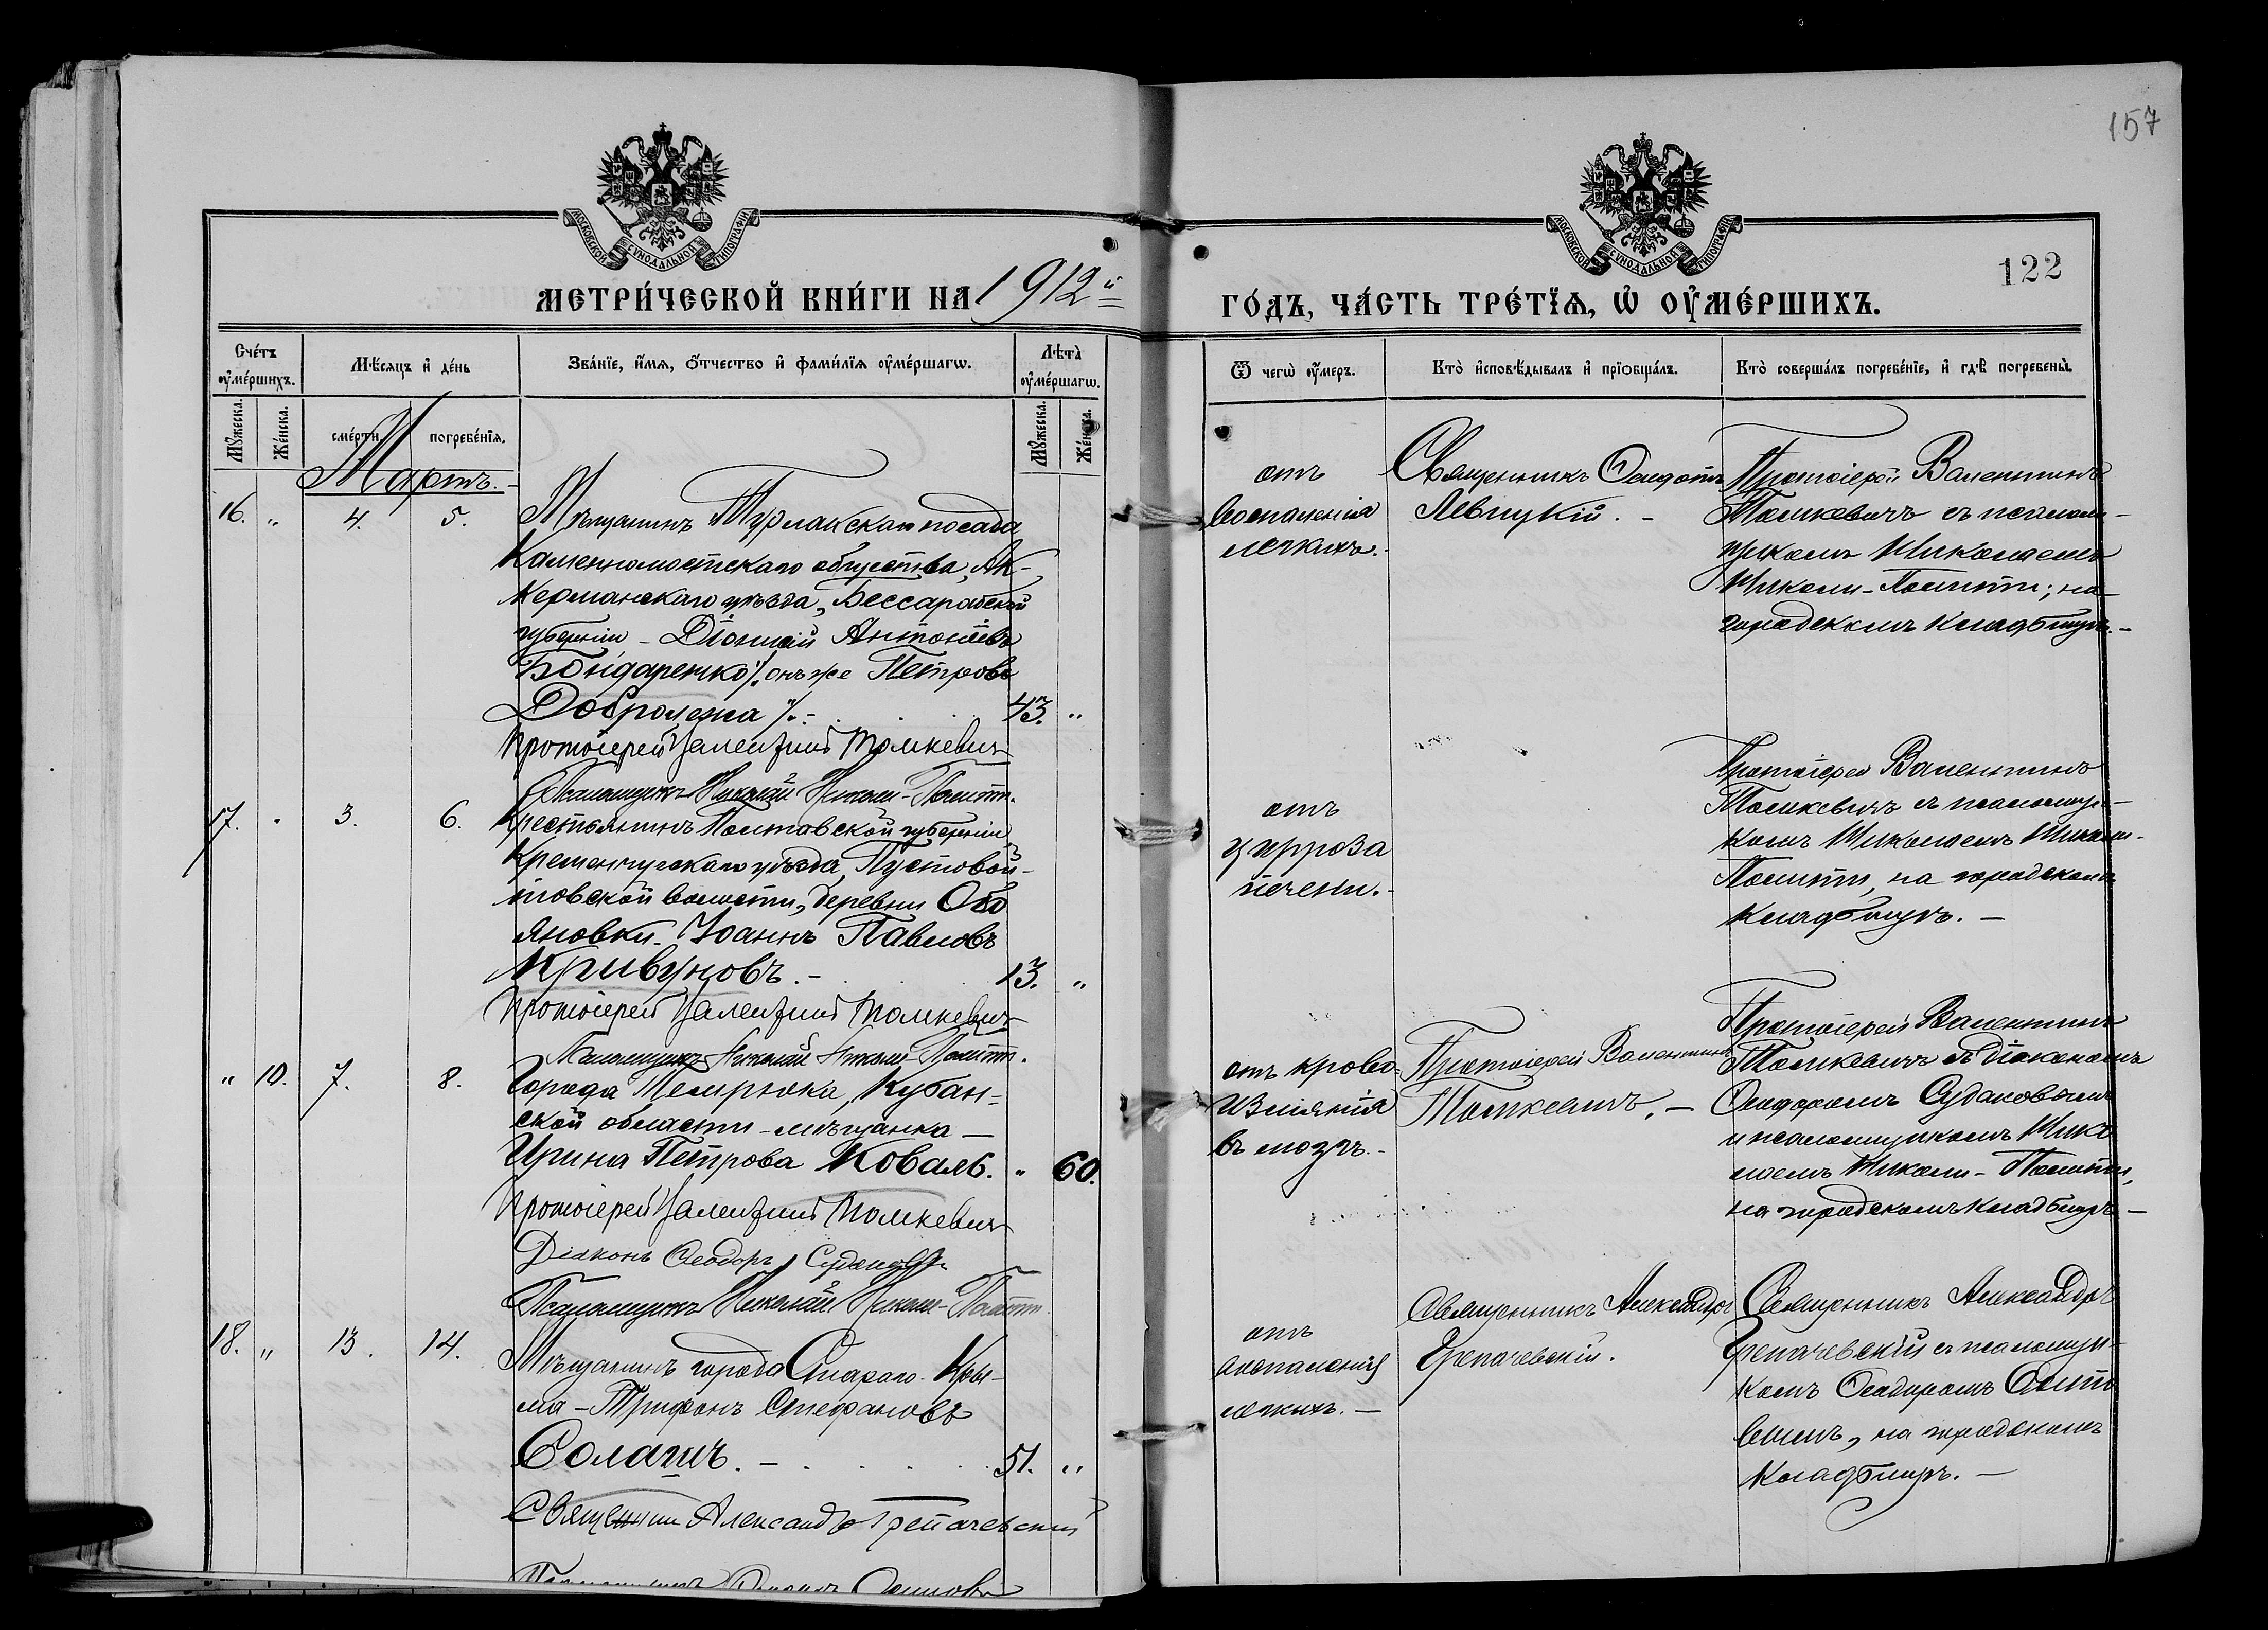 157
МОСКОВСКОЙ СѴНОДАЛЬНОЙ ТИПОГРАФІИ
МОСКОВСКОЙ СѴНОДАЛЬНОЙ ТИПОГРАФІИ
122
МЕТРИ́ЧЕСКОЙ КНИ́ГИ НА 1912й
ГО́ДЪ, ЧА́СТЬ ТРЕ́ТЇѦ, Ѡ҆ ОУ҆МЕ́РШИХЪ.
Сче́тъ оу҆ме́ршихъ.
Мѣ́сяцъ и҆ де́нь
Зва́нїе, и҆́мя, ѻ҆́тчество и҆ фами́лїя оу҆ме́ршагѡ.
Лѣта̀ оу҆ме́ршагѡ.
Ѿ чегѡ̀ оу҆́меръ.
Кто̀ и҆сповѣ́дывалъ и҆ прїѡбща́лъ.
Кто̀ соверша́лъ погребе́нїе, и҆ гдѣ̀ погребены̀.
Мꙋ́жеска.
Же́нска.
сме́рти.
погребе́нїя.
Мꙋ́жеска.
Же́нска.
Мартъ.
16. " 4. 5.
Мѣщанинъ Турлакскаго посада
Каменномостскаго общества, Ак-
керманскаго уѣзда, Бессарабской
губерніи - Діонисій Антоніевъ
Бондаренко /: онъ же Петровъ
Добролежа /:- 43. "
Протоіерей Валентинъ Томкевич
Псаломщикъ Николай Николи-Политти.
отъ
воспаленія
легкихъ.-
Священникъ Ѳеодотъ
Левицкій. -
Протоіерей Валентинъ
Томкевичъ съ псалом-
щикомъ Николаемъ
Николи-Политти; на
городскомъ кладбищѣ.-
17. " 3. 6.
Крестьянинъ Полтавской губерніи,
Кременчугскаго уѣзда, Пустовой-
товской волости, деревни
яновки - Іоаннъ Павловъ
Кривуновъ.- 13. "
Протоіерей Валентинъ Томкевич
Псаломщикъ Николай Николи-Политти.
отъ
цирроза
печени.-
Протоіерей Валентинъ
Томкевичъ съ псаломщи-
комъ Николаемъ Николи-
Политти, на городскомъ
кладбищѣ. -
" 10. 7. 8.
Города Темрюка, Кубан-
ской области - мѣщанка -
Ирина Петрова Коваль. " 60.
Протоіерей Валентинъ Томкевич
Діаконъ Ѳеодоръ Судаковъ
Псаломщикъ Николай Николи-Политти.
отъ крово-
изліянія
въ мозгъ.-
Протоіерей Валентинъ
Томкевичъ. -
Протоіерей Валентинъ
Томкевичъ съ діакономъ
Ѳеодоромъ Судаковымъ
и псаломщикомъ Нико
лаемъ Николи-Политти,
на городскомъ кладбищѣ -
18. " 13. 14.
Мѣщанинъ города Стараго-Кры-
ма - Трифонъ Стефановъ
Солагил. - 51. "
Священник Александръ Грепачевский
Псаломщикъ
отъ
воспаленія
легкихъ. -
Священникъ Александръ
Грепачевскій.
Священникъ Александръ
Грепачевскій съ псаломщи-
комъ Ѳеодоромъ
на городскомъ
кладбищѣ. -